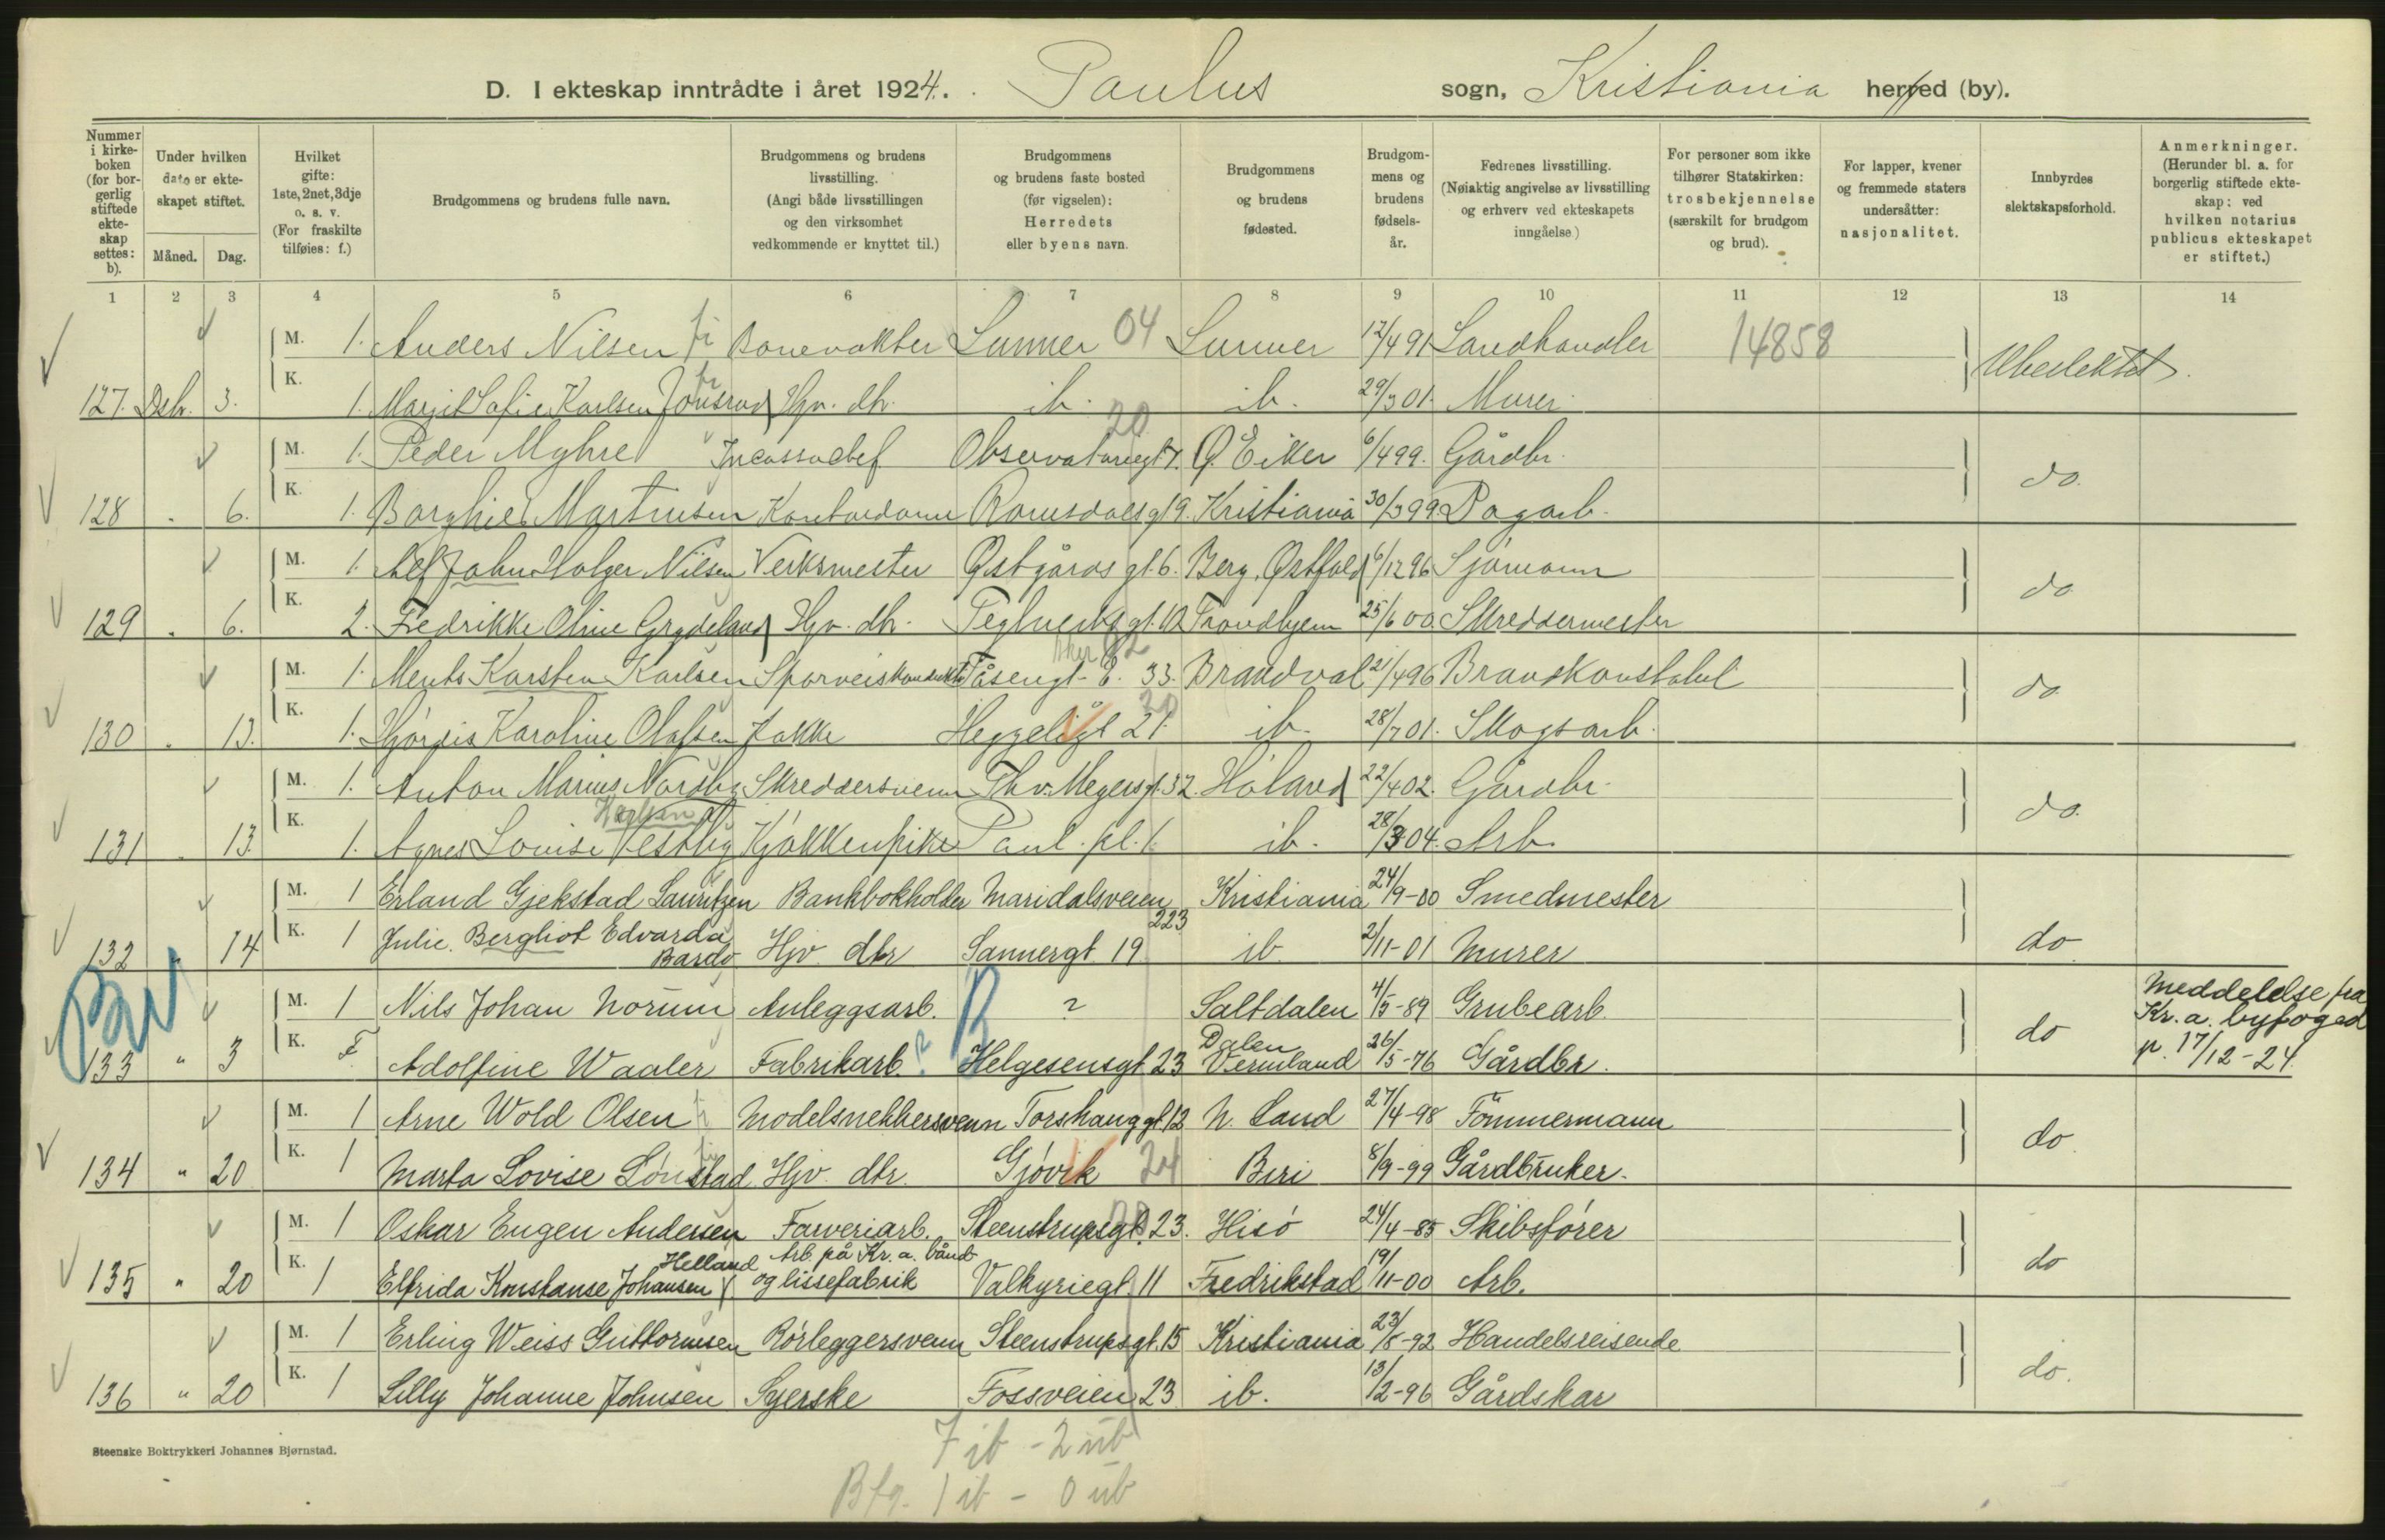 D. I ekteskap inntrådte i året 1924. Paulus sogn, Kristiania herred (by).
Nummer i kirkeboken (for borgerlig stiftede ekteskap settes: b).
Under hvilken dato er ekteskapet stiftet.
Måned. Dag.
Hvilket gifte: 1ste, 2net, 3dje o. s. v. (For fraskilte tilføies: f.)
Brudgommens og brudens fulle navn.
Brudgommens og brudens livsstilling. (Angi både livsstillingen og den virksomhet vedkommende er knyttet til.)
Brudgommens og brudens faste bosted (før vigselen): Herredets eller byens navn.
Brudgommens og brudens fødested.
Brudgommens og brudens fødselsår.
Fedrenes livsstilling. (Nøiaktig angivelse av livsstilling og erhverv ved ekteskapets inngåelse.)
For personer som ikke tilhører Statskirken: trosbekjennelse (særskilt for brudgom og brud).
For lapper, kvener og fremmede staters undersåtter: nasjonalitet.
Innbyrdes slektskapsforhold.
Anmerkninger. (Herunder bl. a. for borgerlig stiftede ekteskap: ved hvilken notarius publicus ekteskapet er stiftet.)
1 2 3 4 5 6 7 8 9 10 11 12 13 14
M. 1. Anders Nilsen Banevokter Lunner 04 Lunner 12/4 91 Landhandler 14858
127. Dsbr. 3. K. 1. Margit Sofie Karlsen Jonsrud Hjv. dtr. ib. ib. 29/3 01. Murer. Ubeslektet.
M. 1. Peder Myhre Incassochef Observatoriegt 7. Ø. Eiker 6/4 99. Gårdbr.
128 " 6. K. 1. Borghild Martinsen Kontordame Romsdalsgt 9. Kristiania 30/3 99 Dagarb. do.
M. 1. Alf John Holger Nilsen Verksmester Østgårds gt. 6. Berg, Østfold 6/12 96 Sjømann
129 " 6. K. 2. Fredrikke Oline Grydeland Hjv. dtr. Teglverksgt. 12 Trondhjem 25/6 00. Skreddermester do.
M. 1. Karsten Karlsen Sporveiskonduktør Tåsengt. 33. Brandval 21/4 96 Brandkonstabel
130 " 13. K. 1. Hjørdis Karoline Olafsen Kokke Heggeligt 21. ib. 28/7 01. Skogsarb. do.
M. 1. Anton Marius Nordby Skreddersvenn Th. v. Meyersgt. 32. Høland 22/4 02. Gårdbr.
131 " 13. K. 1. Agnes Louise Karlsen Vestby Kjøkkenpike Paul. pl. 1. ib. 28/3 04. Arb. do.
M. 1 Erland Gjekstad Lauritzen Bankbokholder Maridalsveien 223 Kristiania 24/9-00 Smedmester
132 " 14 K. 1 Julie Bergliot Edvarda Bardo Hjv. dtr Sannergt 19 ib. 2/11-01 Murer do.
M. 1 Nils Johan Norum Anleggsarb. ? Saltdalen 4/5-89 Grubearb.
133 " 3 K. F. Adolfine Waaler Fabrikarb. ? Helgesensgt 23 Dalen Vermland 26/5-76 Gårdbr. do Meddelelse fra Kr.a. byfoged p. 17/12-24.
M. 1 Arne Wold Olsen Modelsnekkersvenn Torshauggt. 12 N. Land 27/4-98 Tömmermann
134 " 20 K. 1 Marta Lovise Lønstad Hjv. dtr. Gjøvik 24 Biri 8/9-99 Gårdbruker. do.
M. 1 Oskar Eugen Andersen Farveriarb. Steenstrupsgt. 23. Hisø 24/4-85 Skibsfører
135 " 20 K. 1 Elfrida Konstanse Johansen Helland Arb. på Kr.a. bånd og lissefabrik Valkyriegt. 11 Fredrikstad 19/11-00 Arb. do
M. 1 Erling Weiss Guttormsen Rørleggersvenn Steenstrupsgt. 15 Kristiania 23/8-92 Handelsreisende
136 " 20 K. 1 Lilly Johanne Johnsen Syerske Fossveien 23 ib. 13/2-96 Gårdskar do.
Steenske Boktrykkeri Johannes Bjørnstad.
7 ib - 2 ub
Bfg. 1 ib - 0 ub